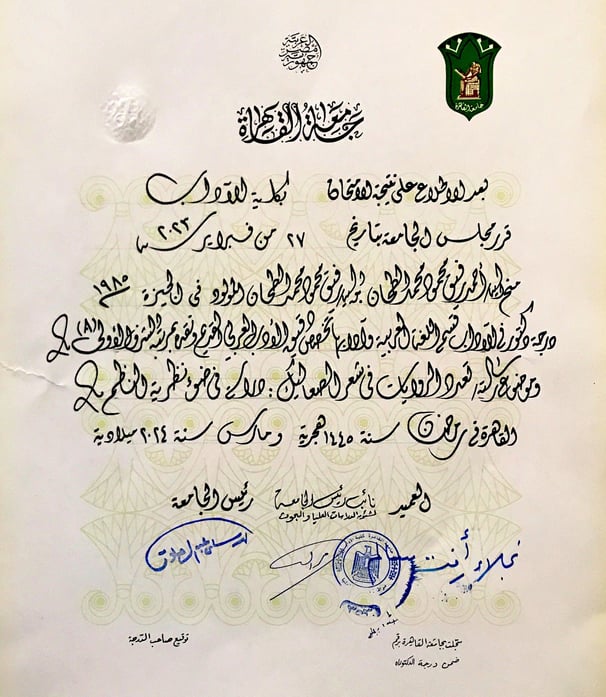 جمهورية مصر العربية
جامعة القاهرة
جامعة القاهرة
بعد الاطلاع على نتيجة الامتحان بكلية الآداب
قرر مجلس الجامعة بتاريخ ٢٧ من فبراير سنة ٢٠٢٣
منح السيد/ أحمد رفيق محمود محمد الطحان بن السيد/ رفيق محمود محمد الطحان المولود في الجيزة ١٩٨٥
درجة دكتور في الآداب قسم اللغة العربية وآدابها تخصص دقيق الأدب العربي القديم ونقده بمرتبة الشرف الأولى (A)
وموضوع رسالته/ تعدد الروايات في شعر الصعاليك: دراسة في ضوء نظرية النظم
القاهرة في رمضان سنة ١٤٤٥ هجرية ومارس سنة ٢٠٢٤ ميلادية
العميد نائب رئيس الجامعة رئيس الجامعة
لشئون الدراسات العليا والبحوث
نجلاء رأفت
سجلت بجامعة القاهرة برقم
ضمن درجة الدكتوراه
توقيع صاحب الدرجة